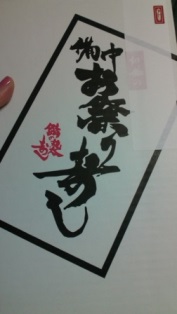 備中
お祭り寿し